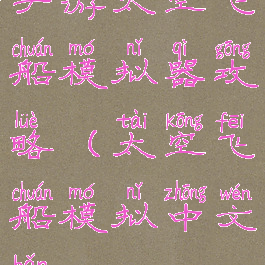 手游太空飞
chuán mó nǐ qì gōng
船模拟器攻
lüè tài kōng fēi
略（太空飞
chuán mó nǐ zhōng wén
船模拟中文
bǎn